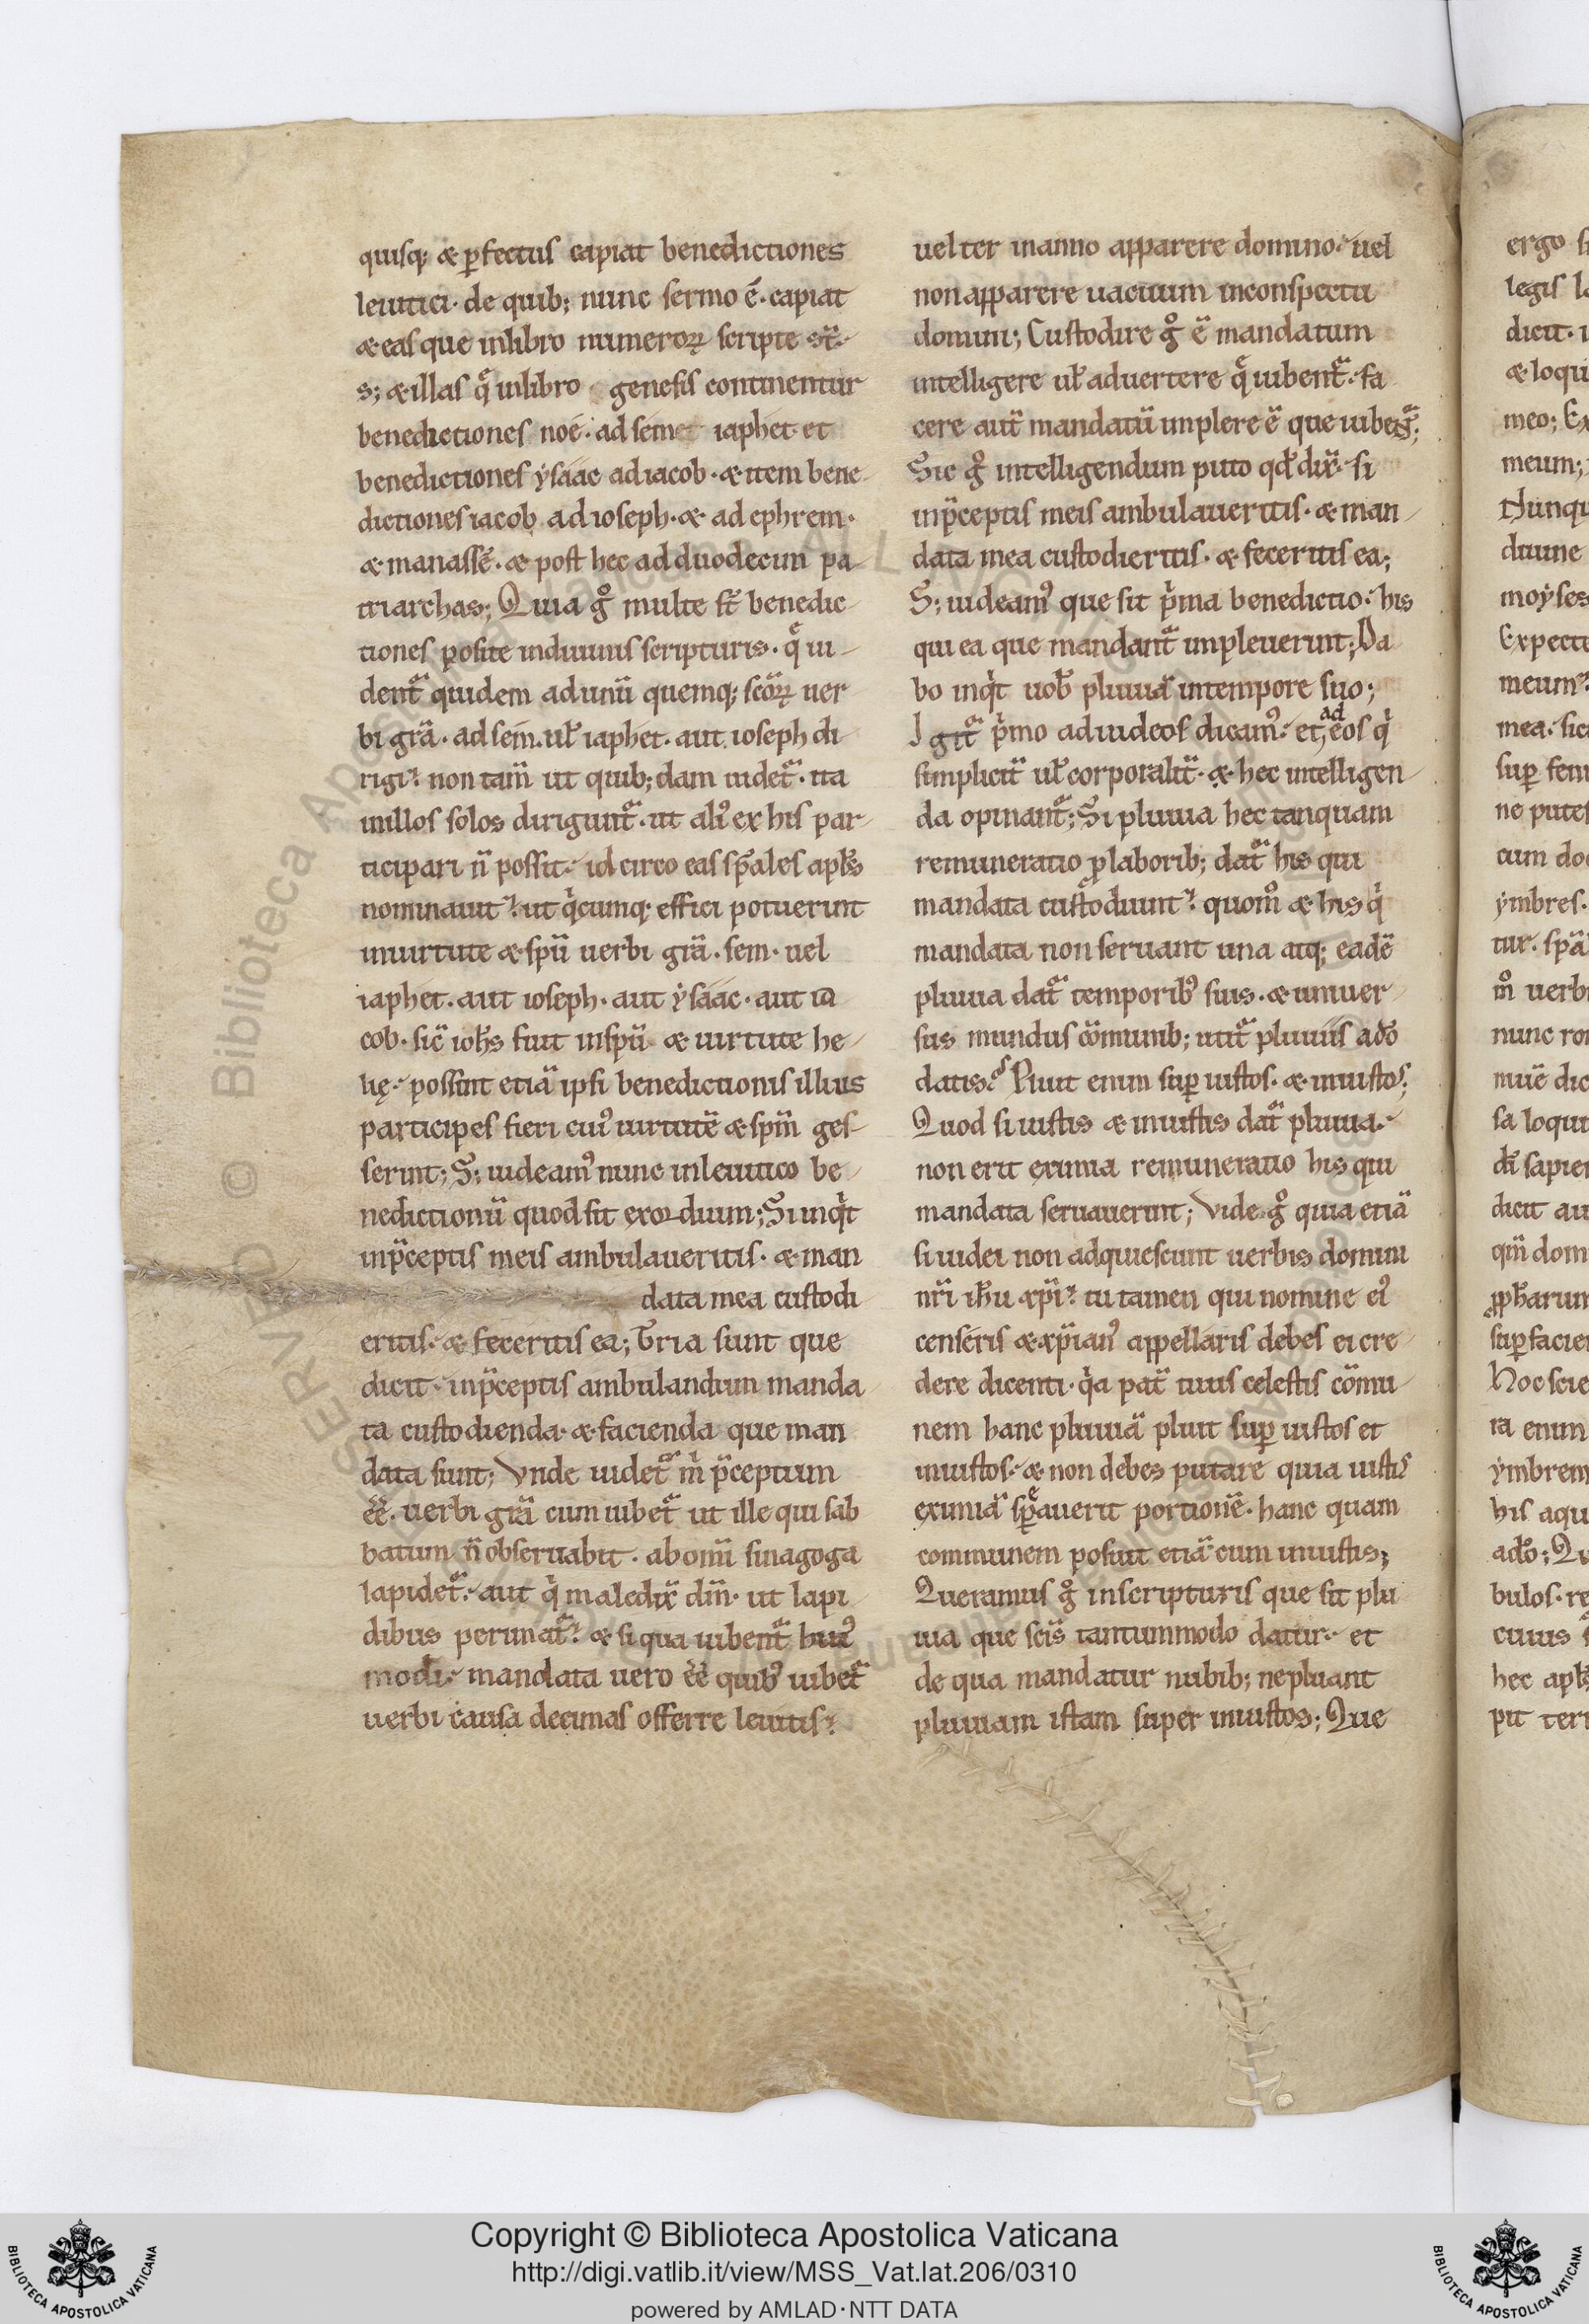 quisq; & p̱fectus capiat benedictiones
leuitici· de quib; nunc sermo ē· capiat
& eas que inlibro numeroꝝ scripte st̄·
S; & illas q̄ inlibro genesis continentur
benedictiones noe· ad sem et iaphet· et
benedictiones ẏsáác ad iacob· & item bene-
dictiones iacob ad ioseph· & ad ephrem·
& manassē· & post hec ad duodecim pa-
triarchas; Quia gͦ multe st̄ benedic-
tiones posite indiuinis scripturis· q̄ ui-
dent᷑ quidem ad unū quemq; scōꝝ uer
bi grā· ad sem· uł iaphet· aut ioseph di-
rigi· non tam̄ ut quib; dam uidet᷑· ita
inillos solos dirigunt᷑· ut aliꝰ ex his par-
ticipari n̄ possit· id circo eas sp̄ales apłs
nominauit· ut qͥcumq; effici potuerint
inuirtute & spū uerbi grā· sem· uel
iaphet· aut ioseph· aut ẏsáác· aut ia
cob· sic̄ ioħs fuit inspū & uirtute he-
lię· possint etiā ipsi benedictionis illius
participes fieri cuiꝰ uirtutē & spm̄ ges-
serint; S; uideamꝰ nunc inleuitico be-
nedictionū quod sit exordium; Si inqͥt
inp̄ceptis meis ambulaueritis· & man
data mea custodi
eritis· & feceritis ea; Tria sunt que
dicit· inp̄ceptis ambulandum manda
ta custodienda· & facienda que man
data sunt; Vnde uidet᷑ m̄ p̄ceptum
ēē· uerbi grā cum iubet᷑ ut ille qui sab
batum n̄ obseruabit· ab omī sinagoga
lapidet᷑· aut qͥ maledix̄ dm̄· ut lapi
dibus perimat᷑· & si qua iubent᷑ huiꝰ
modi· mandata uero ēē quibꝰ iubet᷑
uerbi causa decimas offerre leuitis·
uel ter inanno apparere domino· uel
non apparere uacuum inconspectu
domini; Custodire gͦ ē mandatum
intelligere uł aduertere q̄ iubent᷑· fa
cere aut̄ mandatū implere ē que iubent᷑;
Sic gͦ intelligendum puto qd̄ dix̄· si
inp̄ceptis meis ambulaueritis· & man-
data mea custodieritis· & feceritis ea;
S; uideamꝰ que sit pͥma benedictio· his
qui ea que mandant᷑ impleuerint; Da
bo inqͥt uob̄ pluuiā intempore suo;
Igit᷑ pͥmo ad iudeos dicamꝰ· et ad eos qͥ
simplicit̄ uł corporalit̄· & hec intelligen-
da opinant᷑; Si pluuia hec tanquam
remuneratio ꝓ laborib; dat᷑ his qui
mandata custodiunt· quomͦ & his qͥ
mandata non seruant una atq; eadē
pluuia dat᷑ temporibꝰ suis· & uniuer-
sus mundus cōmunib; utit᷑ pluuiis a dō
datis; Pluit enim suꝑ iustos· & iniustos;
Quod si iustis & iniustis dat᷑ pluuia·
non erit eximia remuneratio his qui
mandata seruauerint; Vide gͦ quia etiā
si iudei non adquiescunt uerbis domini
nr̄i ih̄u xp̄i· tu tamen qui nomine eiꝰ
censeris & xp̄ianꝰ appellaris debes ei cre-
dere dicenti· qͥa pat̄ tuus celestis cōmu-
nem hanc pluuiā pluit suꝑ iustos et
iniustos· & non debes putare quia iustis
eximiā sꝑauerit portionē· hanc quam
communem posuit etiā cum iniustis;
Queramus gͦ inscripturis que sit plu
uia que scīs tantummodo datur· et
de qua mandatur nubib; ne pluant
pluuiam istam super iniustos; Que
Copyright © Biblioteca Apostolica Vaticana
http://digi.vatlib.it/view/MSS_Vat.lat.206/0310
powered by AMLAD·NTT DATA
BIBLIOTECA APOSTOLICA VATICANA
BIBLIOTECA APOSTOLICA VATICANA